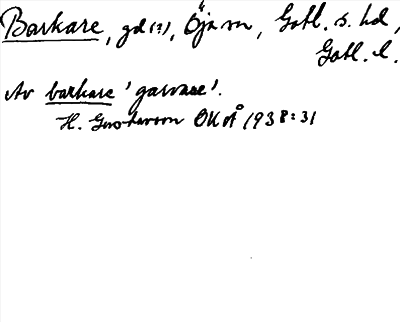 Barkare, gd (?), Öja sn, Gotl. s. hd,
Gotl. l.
Av barkare 'garvare'.
H. Gustavson OKvÅ 1938:31